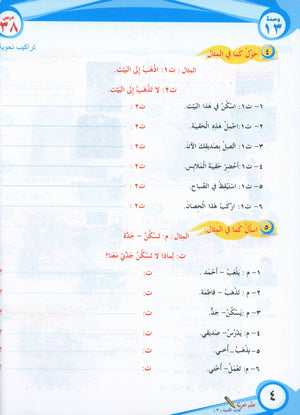 وحدة
١٣
درس
٣٨
تراكيب نحوية
٤ حَوِّلْ كَمَا فِي المِثَالِ:
المِثال : ت١: اذْهَبْ إِلَى البَيْتِ.
ت٢: لَا تَذْهَبْ إِلَى البَيْتِ.
١- ت١: اسْكُنْ فِي هَذَا البَيْتِ. ت٢:
٢- ت١: احْمِلْ هَذِهِ الحَقِيبَةَ. ت٢:
٣- ت١: اتَّصِلْ بِصَدِيقِكَ الآنَ. ت٢:
٤- ت١: أَحْضِرْ حَقِيبَةَ المَلَابِسِ. ت٢:
٥- ت١: اسْتَيْقِظْ فِي الصَّبَاحِ. ت٢:
٦- ت١: ارْكَبْ هَذَا الحِصَانَ. ت٢:
٥ اسْأَلْ كَمَا فِي المِثَالِ: المِثال: م: تَسْكُنُ - جَدَّة
ت: لِمَاذَا لَا تَسْكُنُ جَدَّتِي مَعَنَا؟
١- م : يَلْعَبُ - أَحْمَد . ت:
٢- م : تَذْهَبُ - فَاطِمَة. ت:
٣- م: يَسْكُنُ - جَدّ. ت:
٤- م: يَدْرُسُ - صَدِيقِي. ت:
٥- يَذْهَبُ - أَخِي. ت:
٦- تَعْمَلُ - أُخْتِي. ت:
٤